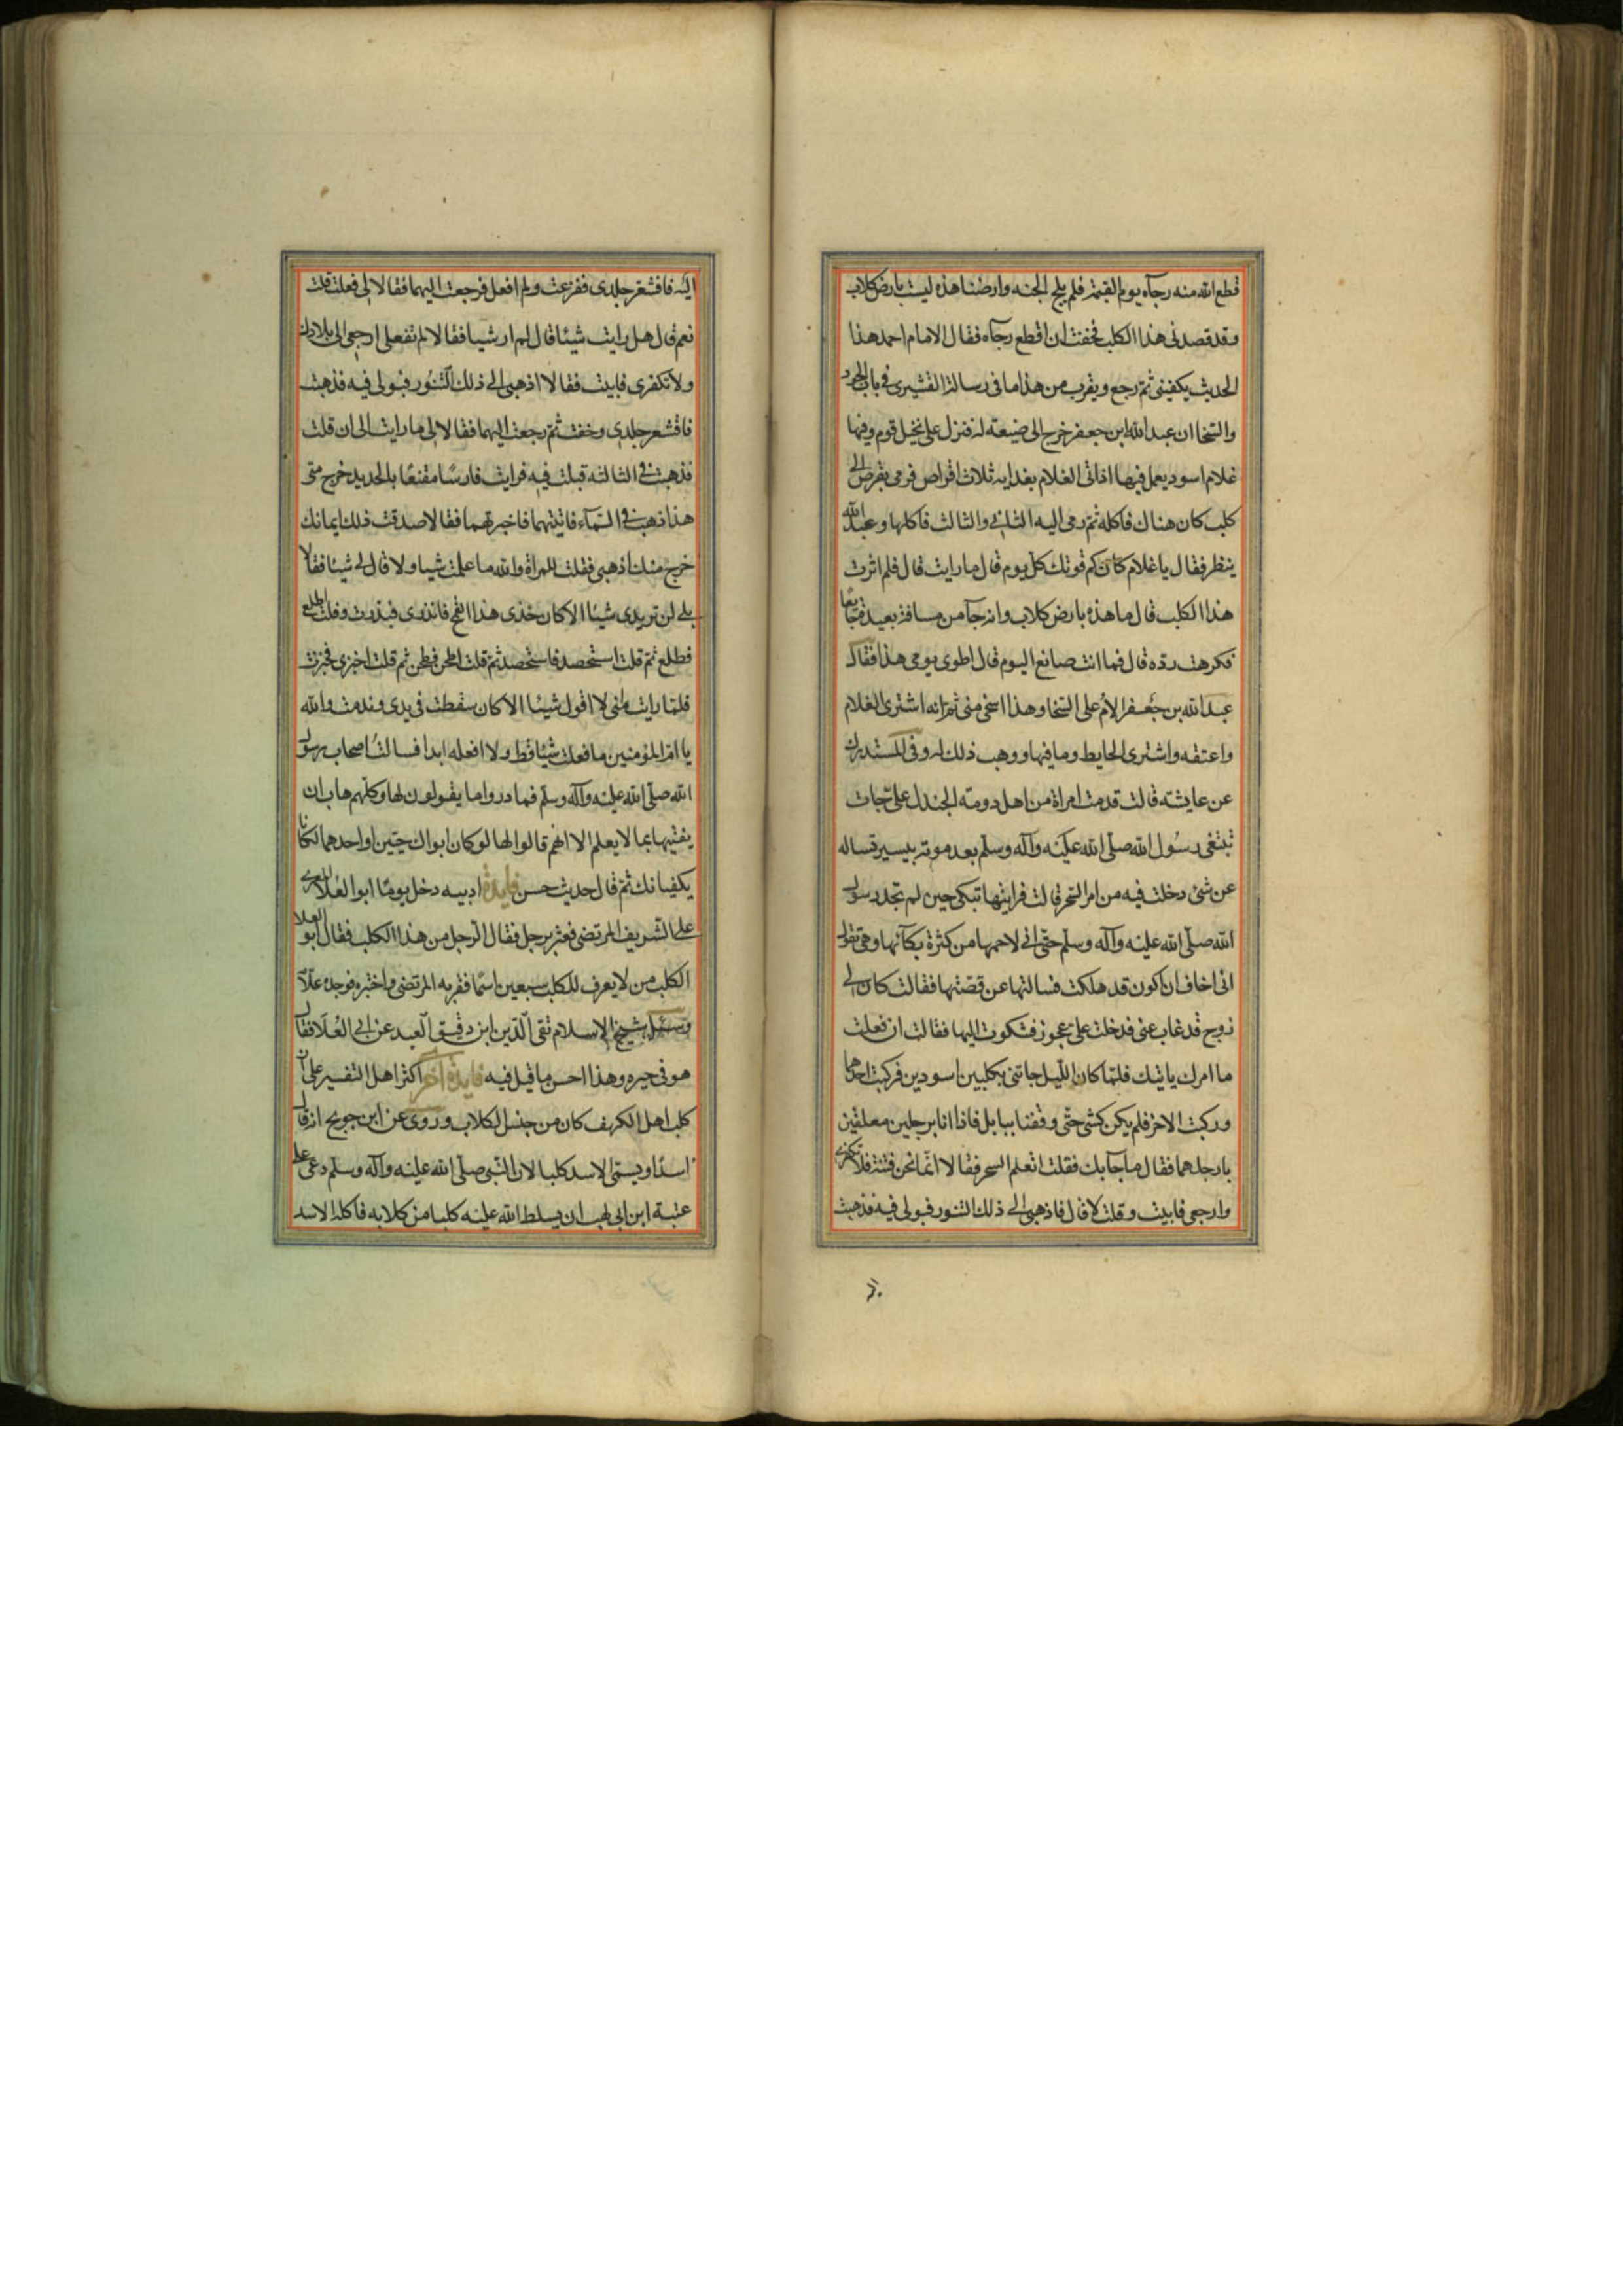 قطع الله منه رجآه يوم القيمة فلم يلج الجنه وارضنا هذه ليست بارض كلاب
وقد قصدنى هذا الكلب فخفت ان اقطع رجآه فقال الامام احمد هذا
الحديث يكفينى ثم رجع ويقرب من هذا ما فى رسالة القشيرى فى باب الجود
والسخا ان عبد الله ابن جعفر خرج الى ضيعة له فنزل على نخيل قوم وفيها
غلام اسود يعمل فيها اذ اتى الغلام بغدايه ثلاث اقراص فرمى بقرص الى
كلب كان هناك فاكله ثم رمى اليه الثانى والثالث فاكلها وعبد الله
ينظر فقال يا غلام كم قوتك كل يوم قال ما رايت قال فلم اثرت
هذا الكلب قال ما هذه بارض كلاب وانه جآ من مسافة بعيدة جايعا
فكرهت رده قال فما انت صانع اليوم قال اطوى يومى هذا فقال
عبد الله بن جعفر الام على السخا وهذا اسخى منى ثم انه اشترى الغلام
واعتقه واشترى الحايط وما فيها ووهب ذلك له وفى المستدرك
عن عايشة قالت قدمت امراة من اهل دومة الجندل على جات
تبتغى رسول الله صلى الله عليه وآله وسلم بعد موته بيسير تساله
عن شئ دخلت فيه من امر السحر قالت فرايتها تبكى حين لم تجد رسول
الله صلى الله عليه وآله وسلم حتى انى لارحمها من كثرة بكآئها وهى تقول
انى اخاف ان اكون قد هلكت فسالتها عن قصتها فقالت كان لى
زوج قد غاب عنى فدخلت على عجوز فشكوت اليها فقالت ان فعلت
ما امرك ياتيك فلما كان الليل جاتنى بكلبين اسودين فركبت احدهما
وركبت الاخر فلم يكن كشى حتى وقفنا ببابل فاذا انا برجلين معلقين
بارجلهما فقال ما جآ بك فقلت اتعلم السحر فقالا انما نحن فتنة فلا تكفرى
وارجعى فابيت وقلت لا قال فاذهبى الى ذلك التنور فبولى فيه فذهبت
اليه فاقشعر جلدى ففزعت ولم افعل فرجعت اليهما فقالا لى فعلت قلت
نعم قال هل رايت شيئا قال لم ار شيا فقالا لم تفعلى ارجعى الى بلادك
ولا تكفرى فابيت فقالا اذهبى الى ذلك التنور فبولى فيه فذهبت
فاقشعر جلدى وخفت ثم رجعت اليهما فقالا لى ما رايت الى ان قلت
فذهبت فى الثالثه فبلت فيه فرايت فارسا مقنعا بالحديد خرج منى
هذا ذهب فى السمآء فاتيتهما فاخبرتهما فقالا صدقت ذلك ايمانك
خرج منك اذهبى فقلت للمراة والله ما علمت شيا ولا قال لى شيئا فقالا
بلى لن تريدى شيئا الا كان خذى هذا القمح فابذرى فبذرت وقلت اطلع
فطلع ثم قلت استحصد فاستحصد ثم قلت اطحن فطحن ثم قلت اخبزى فخبزت
فلما رايت انى لا اقول شيئا الا كان سقطت فى يدى وندمت والله
يا ام المؤمنين ما فعلت شيئا قط ولا افعله ابدا فسالت اصحاب رسول
الله صلى الله عليه وآله وسلم فما دروا ما يقولون لها وكلهم هاب ان
يفتيها بما لا يعلم الا انهم قالوا لها لو كان ابواك حيين او احدهما لكانا
يكفيانك ثم قال حديث حسن فايدة ادبيه دخل يوما ابو العلا المعرى
على الشريف المرتضى فعثر برجل فقال الرجل من هذا الكلب فقال ابو العلا
الكلب من لا يعرف للكلب سبعين اسما فقربه المرتضى واختبره فوجده علآ
وسئل شيخ الاسلام تقى الدين ابن دقيق العيد عن ابى العلا فقال
هو فى حيره وهذا احسن ما قيل فيه فايدة آخر اكثر اهل التفسير على ان
كلب اهل الكهف كان من جنس الكلاب وروى عن ابن جريج انه قال
اسدا ويسمى الاسد كلبا لان النبى صلى الله عليه وآله وسلم دعى على
عتبة ابن ابى لهب ان يسلط الله عليه كلبا من كلابه فاكله الاسد